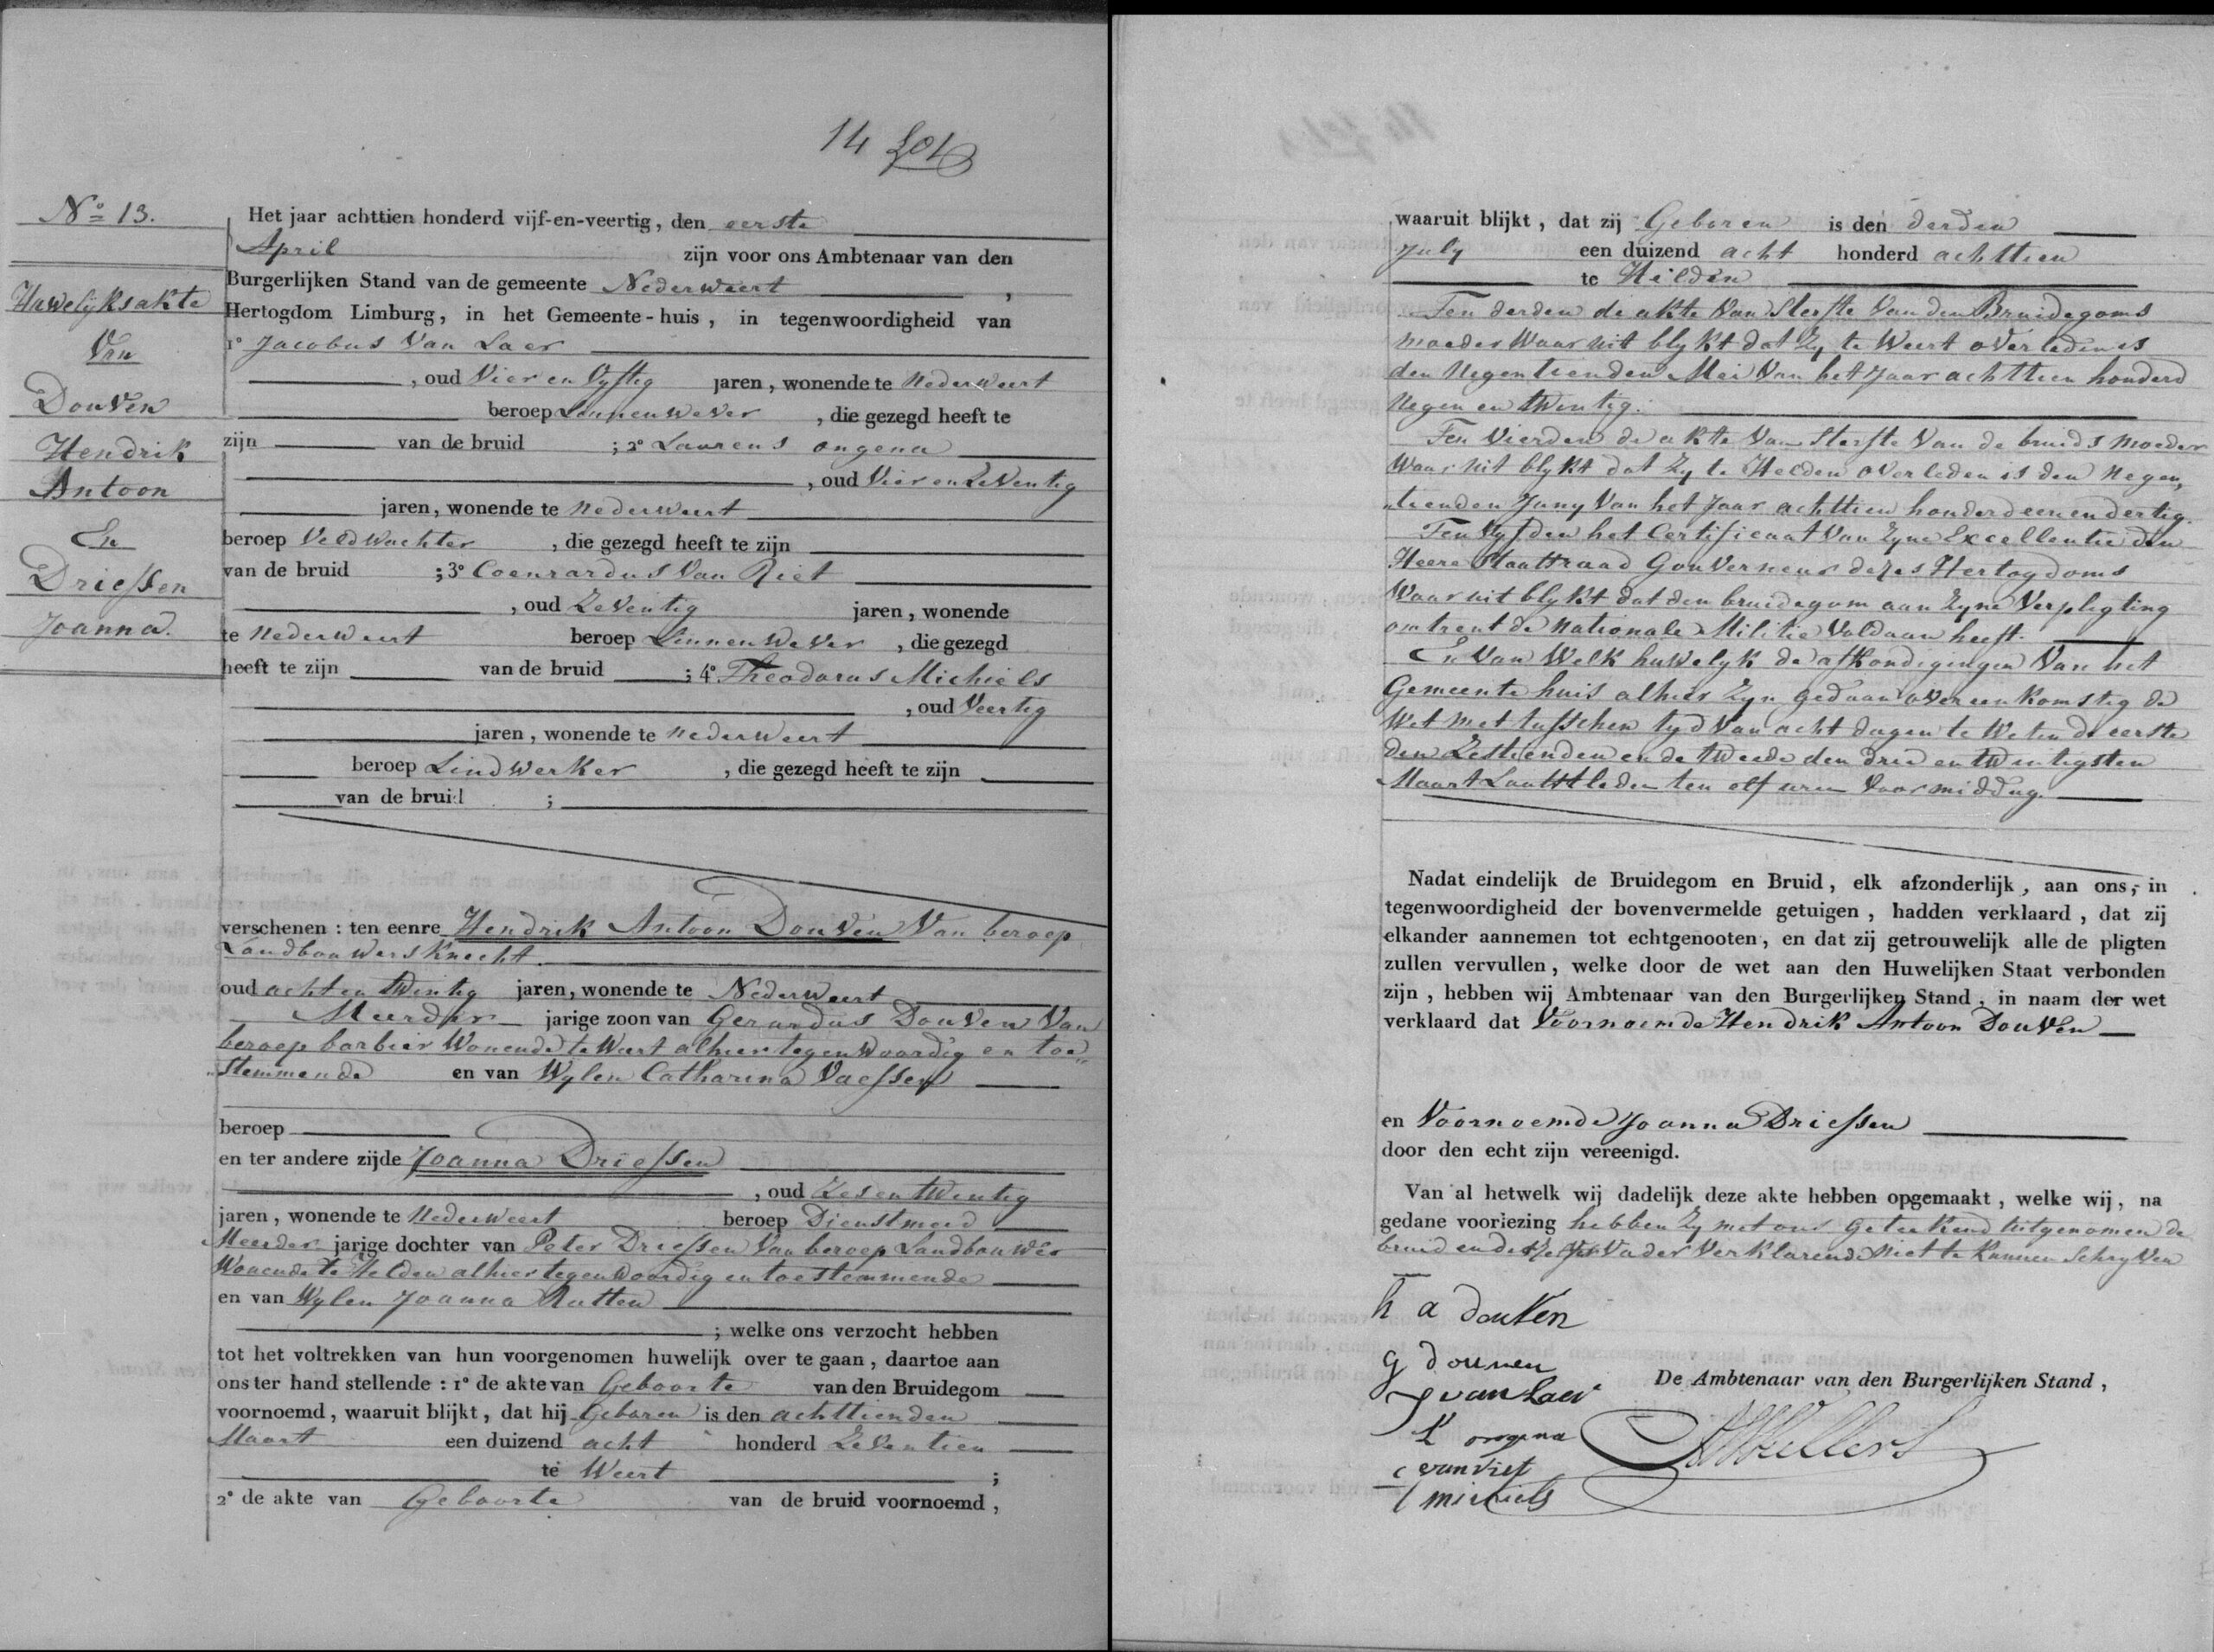 14
No 13.
Huwelijksakte
Van
Douven
Hendrik
Antoon
En
Driessen
Joanna.
Het jaar achttien honderd vijf-en-veertig, den eerste
April zijn voor ons Ambtenaar van den
Burgerlijken Stand van de gemeente Nederweert ,
Hertogdom Limburg, in het Gemeente-huis, in tegenwoordigheid van
1° Jacobus Van Laer
, oud Vier en Vyftig jaren, wonende te Nederweert
beroep Linnenwever , die gezegd heeft te
zijn van de bruid ; 2° Laurens ongena
, oud Vier en Zeventig
jaren, wonende te Nederweert
beroep Veldwachter , die gezegd heeft te zijn
van de bruid ; 3° Coenrardus Van Riet
, oud Zeventig jaren, wonende
te Nederweert beroep Linnenwever , die gezegd
heeft te zijn van de bruid ; 4° Theodorus Michiels
, oud Veertig
jaren, wonende te Nederweert
beroep Lindwerker , die gezegd heeft te zijn
van de bruid ;
verschenen : ten eenre Hendrik Antoon Douven Van beroep
Landbouwers Knecht.
oud acht en twintig jaren, wonende te Nederweert
Meerder jarige zoon van Gerardus Douven Van
beroep barbier Wonende te Weert alhier tegenwoordig en toe„
„stemmende en van Wylen Catharina Vaessen
beroep
en ter andere zijde Joanna Driessen
, oud Zes en twintig
jaren, wonende te Nederweert beroep Dienstmeid
Meerder jarige dochter van Peter Driessen Van beroep Landbouwer
Wonende te Helden alhier tegenwoordig en toestemmende
en van Wylen Joanna Rutten
; welke ons verzocht hebben
tot het voltrekken van hun voorgenomen huwelijk over te gaan, daartoe aan
ons ter hand stellende : 1° de akte van Geboorte van den Bruidegom
voornoemd, waaruit blijkt, dat hij Geboren is den achttienden
Maart een duizend acht honderd Zeventien
te Weert ;
2° de akte van Geboorte van de bruid voornoemd,
waaruit blijkt, dat zij Geboren is den derden
July een duizend acht honderd achttien
te Hilden
Ten derden de akte Van Sterfte Van den Bruidegoms
moeder Waaruit blykt dat Zy te Weert overleden is
den Negentienden Mei Van het Jaar achttien honderd
Negen en twintig.
Ten Vierden de akte Van Sterfte Van de bruids moeder
Waar uit blykt dat Zy te Helden overleden is den Negen„
„tienden Juny Van het Jaar achttien honderd een en dertig.
Ten Vyfden het Certificaat Van Zyne Excellentie den
Heere Staattraad Gouverneur dezes Hertogdoms
Waar uit blykt dat den bruidegom aan Zyne Verpligting
omtrent de Nationale Militie Voldaan heeft.
En Van Welk huwelyk de afkondigingen Van het
Gemeente huis alhier Zyn gedaan overeenkomstig de
Wet met tusschen tyd Van acht dagen te Weten de eerste
den Zestienden en de tweede den drie en twintigsten
Maart Laattleden ten elf uren Voormiddag.
Nadat eindelijk de Bruidegom en Bruid, elk afzonderlijk, aan ons, in
tegenwoordigheid der bovenvermelde getuigen, hadden verklaard, dat zij
elkander aannemen tot echtgenooten, en dat zij getrouwelijk alle de pligten
zullen vervullen, welke door de wet aan den Huwelijken Staat verbonden
zijn, hebben wij Ambtenaar van den Burgerlijken Stand, in naam der wet
verklaard dat Voornoemde Hendrik Antoon Douven
en Voornoemde Joanna Driessen
door den echt zijn vereenigd.
Van al hetwelk wij dadelijk deze akte hebben opgemaakt, welke wij, na
gedane voorlezing hebben Zy met ons Geteekend uitgenomen de
bruid en Vader Verklarende Niet te Kunnen Schryven
h a douven
g douven
J van Laer
L ongena
C van riet
T michiels
De Ambtenaar van den Burgerlijken Stand,